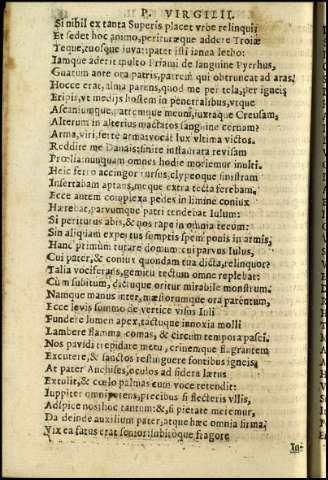 P. VIRGILII.
Si nihil ex tanta Superis placet vrbe relinqui:
Et sedet hoc animo, perituræque addere Troiæ
Teque, tuosque iuuat: patet isti ianua letho:
Iamque aderit multo Priami de sanguine Pyrrhus,
Guatum ante ora patris, patrem qui obtruncat ad aras.
Hocce erat, alma parens, quod me per tela, per igneis
Eripis, vt medijs hostem in penetralibus, vtque
Ascaniumque, patremque meum, iuxtaque Creusam,
Alterum in alterius mactatos sanguine cernam?
Arma, viri, ferte arma: vocat lux vltima victos.
Reddite me Danais: sinite instaurata reuisam
Prœlia: nunquam omnes hodie moriemur inulti.
Heic ferro accingor rursus, clypeoque sinistram
Insertabam aptans, meque extra tecta ferebam.
Ecce autem complexa pedes in limine coniux
Hærebat, paruumque patri tendebat Iulum:
Si periturus abis, & nos rape in omnia tecum:
Sin aliquam expertus sumptis spem ponis in armis,
Hanc primùm tutare domum: cui paruus Iulus,
Cui pater, & coniux quondam tua dicta, relinquor?
Talia vociferans, gemitu tectum omne replebat:
Cùm subitum, dictuque oritur mirabile monstrum.
Namque manus inter, mæstorumque ora parentum,
Ecce leuis summo de vertice visus Iuli
Fundere lumen apex, tactuque innoxia molli
Lambere flamma comas, & circum tempora pasci.
Nos pauidi trepidare metu, crinemque flagrantem
Excutere, & sanctos restinguere fontibus igneis.
At pater Anchises, oculos ad sidera lætus
Extulit, & cœlo palmas cum voce tetendit:
Iuppiter omnipotens, precibus si flecteris vllis,
Adspice nos: hoc tantum: &, si pietate meremur,
Da deinde auxilium pater, atque hæc omnia firma.
Vix ea fatus erat senior: subitòque fragore
In-